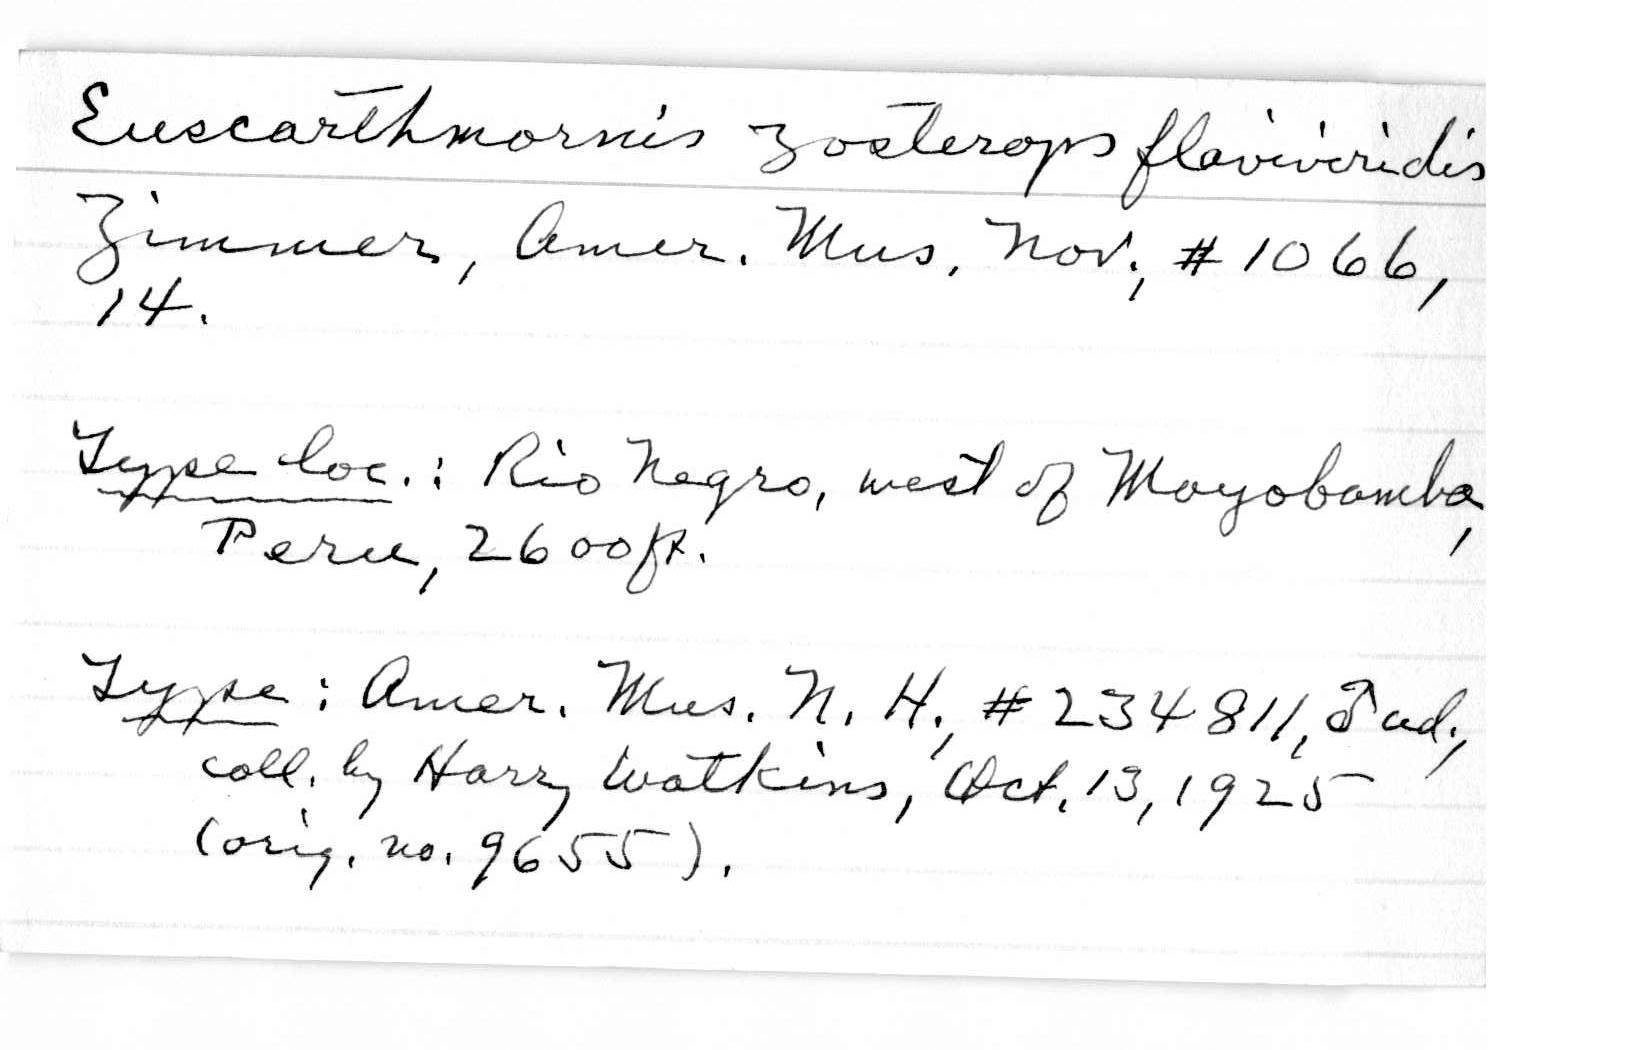 Euscarthmornis zosterops flaviviridis
Zimmer, Amer. Mus. Nov., #1066,
14.
Type loc.: Rio Negro, west of Moyobamba,
Peru, 2600 ft.
Type: Amer. Mus. N. H., #234811, ♂ ad.,
coll. by Harry Watkins, Oct. 13, 1925
(orig. no. 9655).